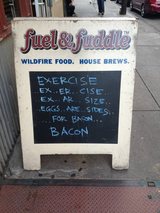 fuel & fuddle
WILDFIRE FOOD. HOUSE BREWS.
EXERCISE
EX..ER..CISE..
EX..AR..SIZE..
EGGS..ARE..SIDES..
...FOR BACON...
BACON